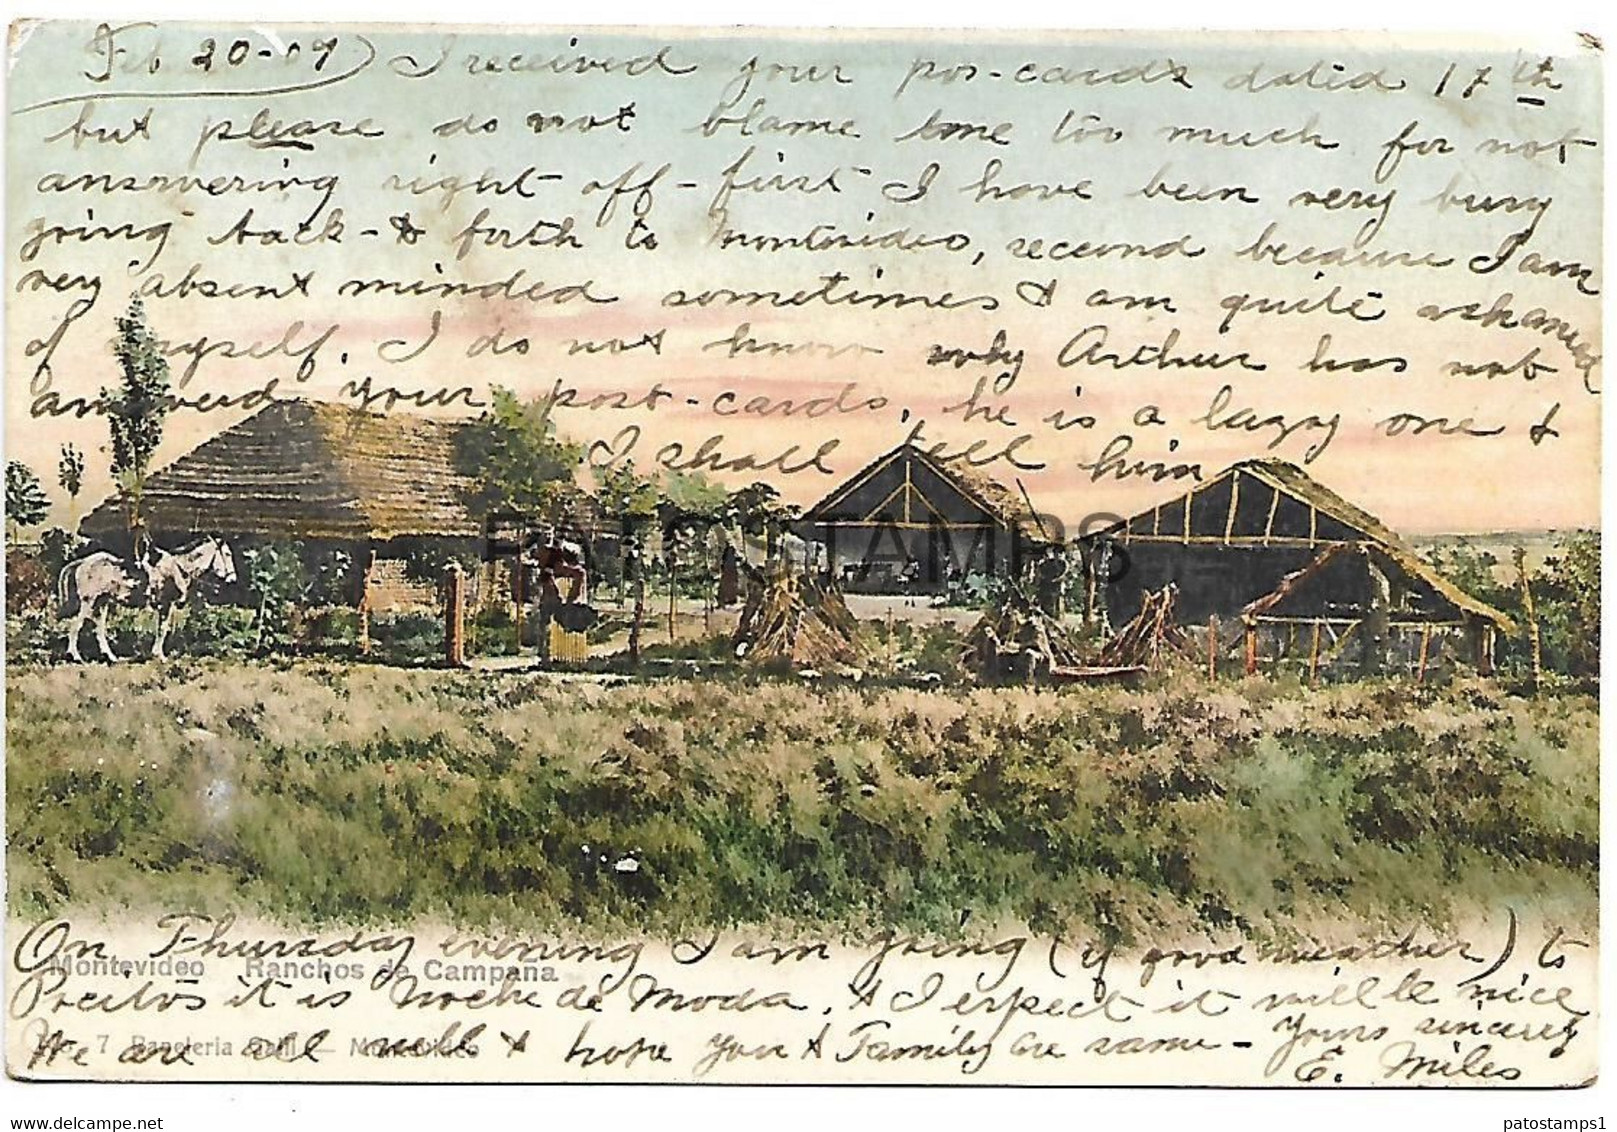 Feb 20-09) I received your pos-cards dated 17th
but please do not blame me too much for not
answering right off - first I have been very busy
going back - & forth to Montevideo, second because I am
very absent minded sometimes & am quite ashamed
of myself. I do not know why Arthur has not
answered your post-cards, he is a lazy one &
I shall tell him
PATOSTAMPS
On Thursday evening I am going (if good weather) to
Montevideo Ranchos de Campana
Pocitos it is Noche de Moda. & I expect it will be nice
We are all well & hope you & Family are same - Yours sincerely
7 Papeleria Galli - Montevideo
E. Miles
www.delcampe.net
patostamps1